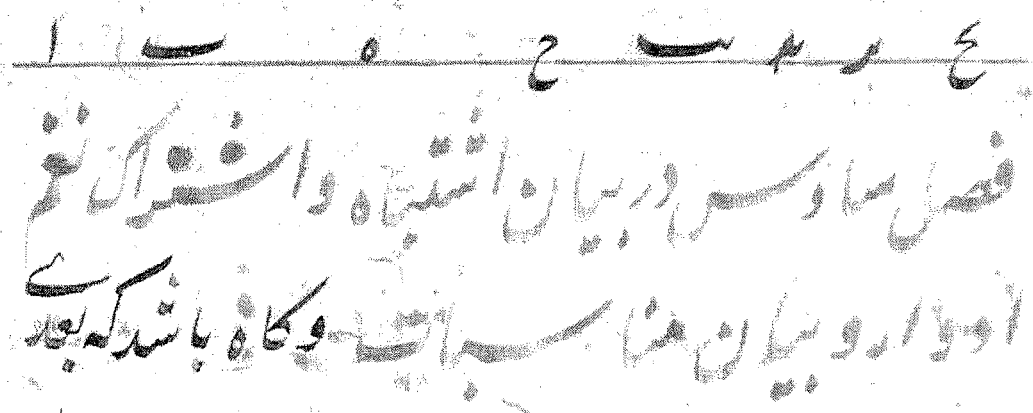 ح ه ب ا
فصل سادس در بیان اشتباه و اشتراک نغم
ادوار و بیان مناسبات و کاه باشد که بعدے